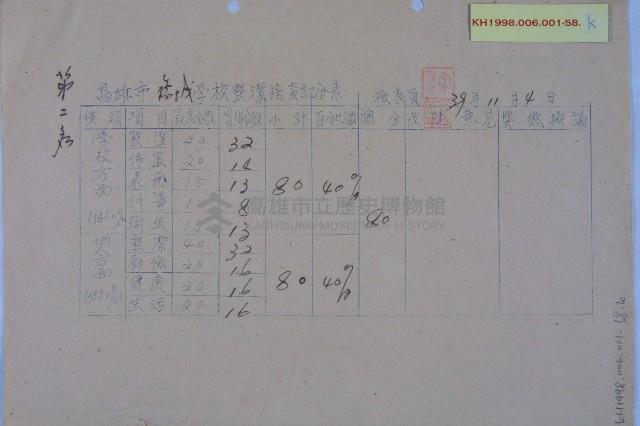 KH1998.006.001-58.k
第二名
高雄市舊城學校整潔檢查記分表 檢查員 39年11月4日
項目 最高分數 實得分數 小計 百分比數 總分 批評意見 獎懲擬議
學校方面 (佔50%)
整潔 40 32
佈置 20 14
表冊 15 13 80 40%
訓導 8
衛生 13 80
個人方面 (佔50%)
整潔 40 32
勤儉 20 16
健康 20 16 80 40%
生活 20 16
高雄市立歷史博物館
KAOHSIUNG MUSEUM OF HISTORY
KH1998.006.001-58.k